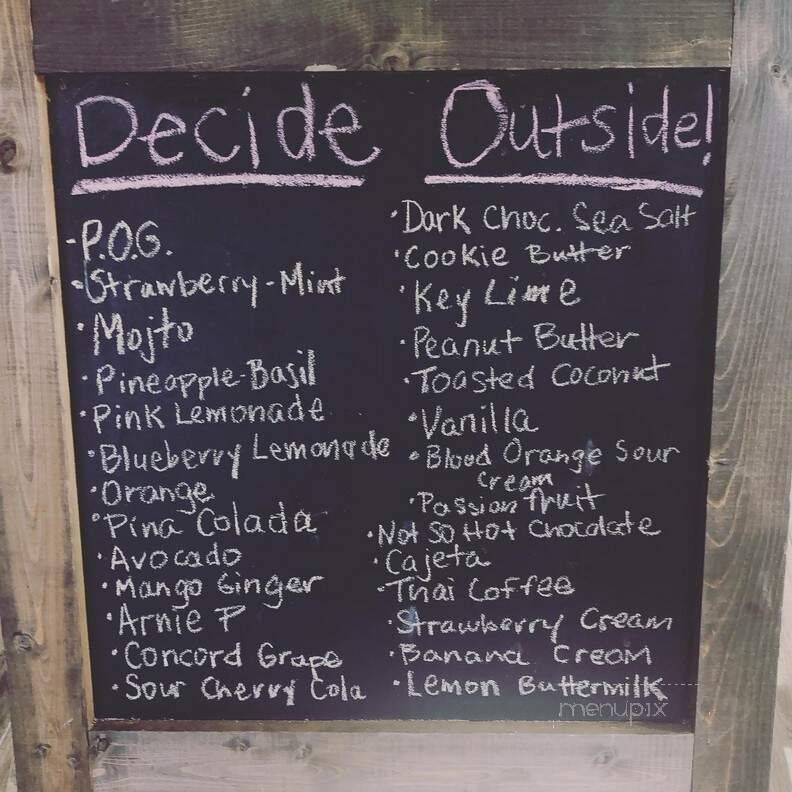 Decide Outside!
· P.O.G.
· Strawberry-Mint
· Mojto
· Pineapple-Basil
· Pink Lemonade
· Blueberry Lemonade
· Orange
· Pina Colada
· Avocado
· Mango Ginger
· Arnie P
· Concord Grape
· Sour Cherry Cola
· Dark Choc. Sea Salt
· Cookie Butter
· Key Lime
· Peanut Butter
· Toasted Coconut
· Vanilla
· Blood Orange Sour
Cream
· Passion fruit
· Not So Hot Chocolate
· Cajeta
· Thai Coffee
· Strawberry Cream
· Banana Cream
· Lemon Buttermilk
menupix